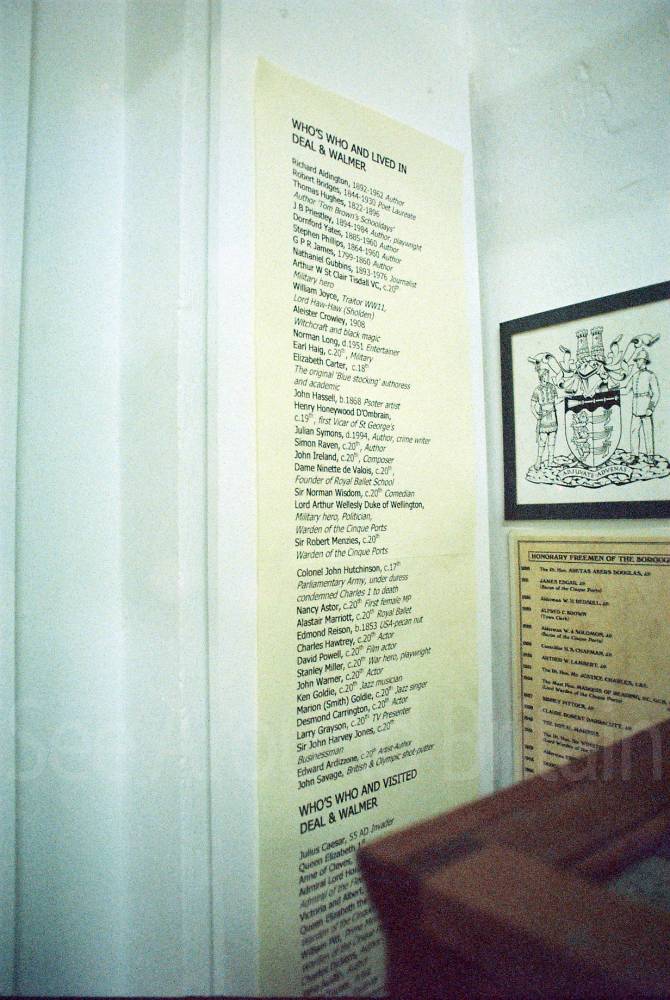 WHO'S WHO AND LIVED IN
DEAL & WALMER
Richard Aldington, 1892-1962 Author
Robert Bridges, 1844-1930 Poet Laureate
Thomas Hughes, 1822-1896
Author 'Tom Brown's Schooldays'
J B Priestley, 1894-1984 Author, playwright
Dornford Yates, 1885-1960 Author
Stephen Phillips, 1864-1960 Author
G P R James, 1799-1860 Author
Nathaniel Gubbins, 1893-1976 Journalist
Arthur W St Clair Tisdall VC, c.20th
Military hero
William Joyce, Traitor WW11,
Lord Haw-Haw (Sholden)
Aleister Crowley, 1908
Witchcraft and black magic
Norman Long, d.1951 Entertainer
Earl Haig, c.20th, Military
Elizabeth Carter, c.18th
The original 'Blue stocking' authoress
and academic
John Hassell, b.1868 Psoter artist
Henry Honeywood D'Ombrain,
c.19th, first Vicar of St George's
Julian Symons, d.1994, Author, crime writer
Simon Raven, c.20th, Author
John Ireland, c.20th, Composer
Dame Ninette de Valois, c.20th,
Founder of Royal Ballet School
Sir Norman Wisdom, c.20th Comedian
Lord Arthur Wellesly Duke of Wellington,
Military hero, Politician,
Warden of the Cinque Ports
Sir Robert Menzies, c.20th
Warden of the Cinque Ports
Colonel John Hutchinson, c.17th
Parliamentary Army, under duress
condemned Charles 1 to death
Nancy Astor, c.20th First female MP
Alastair Marriott, c.20th Royal Ballet
Edmond Reison, b.1853 USA-pecan nut
Charles Hawtrey, c.20th Actor
David Powell, c.20th Film actor
Stanley Miller, c.20th War hero, playwright
John Warner, c.20th Actor
Ken Goldie, c.20th Jazz musician
Marion (Smith) Goldie, c.20th Jazz singer
Desmond Carrington, c.20th Actor
Larry Grayson, c.20th TV Presenter
Sir John Harvey Jones, c.20th
Businessman
Edward Ardizzone, c.20th Artist-Author
John Savage, British & Olympic shot-putter
WHO'S WHO AND VISITED
DEAL & WALMER
Julius Caesar, 55 AD Invader
Queen Elizabeth
Anne of Cleves,
Admiral Lord
Admiral of the
Victoria and Albert,
Queen Elizabeth the
Warden of the Cinque
William Pitt, Prime
Warden of the Cinque
Charles Dickens, Author
ADJUVATE ADVENAS
HONORARY FREEMEN OF THE BOROUGH
The Rt. Hon. ARETAS AKERS DOUGLAS, J.P.
JAMES EDGAR, J.P.
(Baron of the Cinque Ports)
Alderman W. H. REDSULL, J.P.
ALFRED C. BROWN
(Town Clerk)
Alderman W. A. SOLOMON, J.P.
(Baron of the Cinque Ports)
Councillor H. S. CHAPMAN, J.P.
ARTHUR W. LAMBERT, J.P.
The Rt. Hon. Mr. JUSTICE CHARLES,
The Most Hon. MARQUIS OF READING,
(Lord Warden of the Cinque Ports)
SIDNEY PITTOCK, J.P.
CLAUDE ROBERT DARRACOTT, J.P.
THE ROYAL MARINES
The Rt. Hon. Sir
(Lord Warden of
Britain